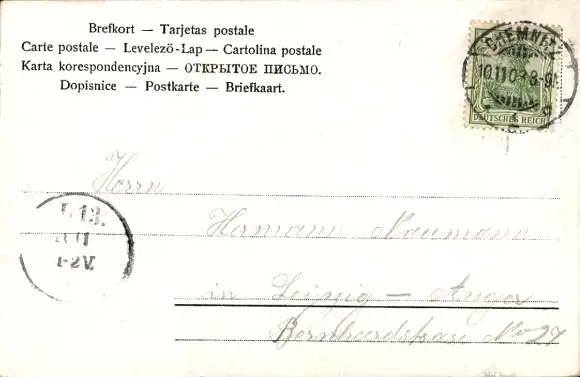 Brefkort — Tarjetas postale
Carte postale — Levelezö-Lap — Cartolina postale
Karta korespondencyjna — ОТКРЫТОЕ ПИСЬМО.
Dopisnice — Postkarte — Briefkaart.
CHEMNITZ
10.11.03.8-9
DEUTSCHES REICH
Herrn
Hermann Naumann
in Leipzig — Anger
Bernhardstrasse No 27
L 13.
11
1-2V.